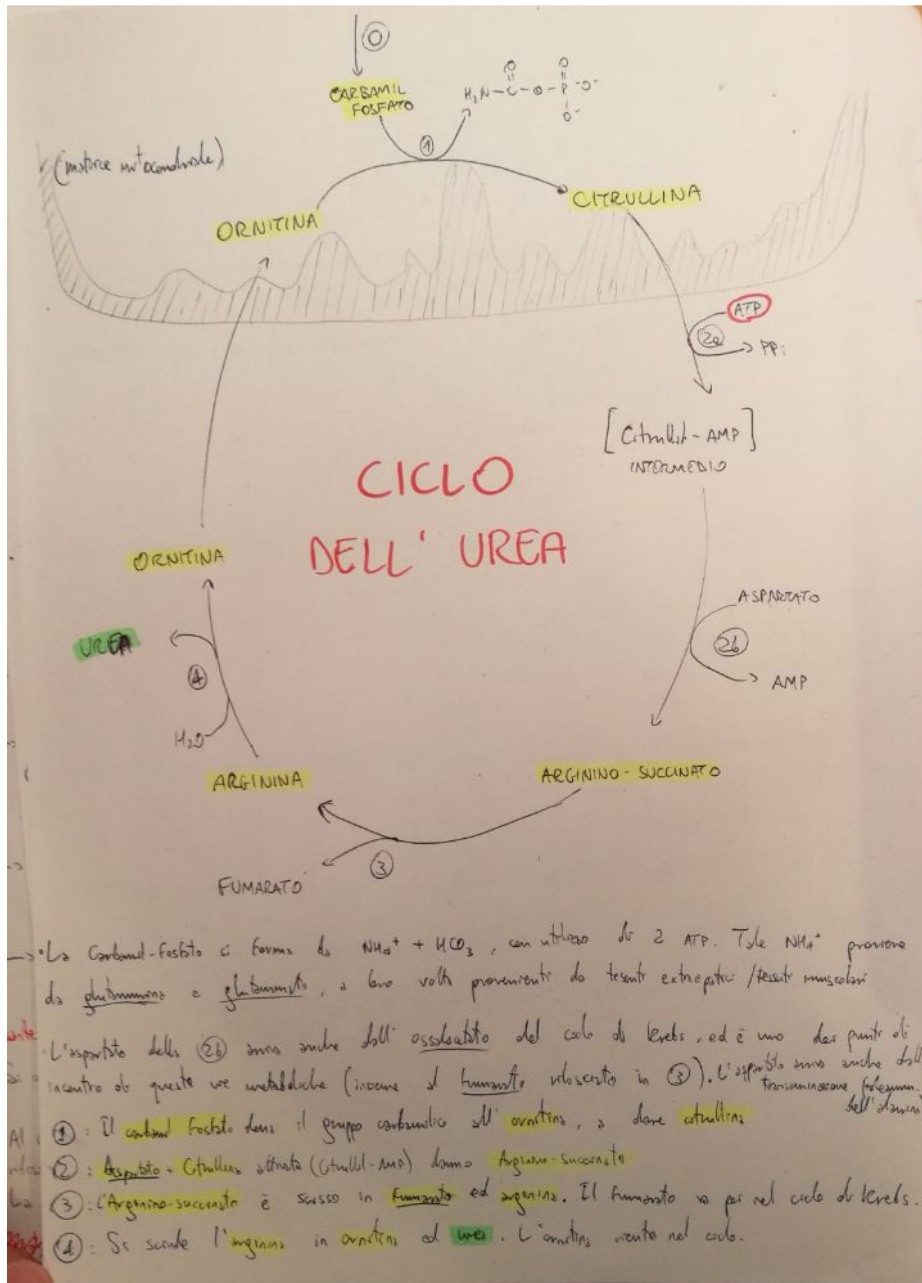 0
CARBAMIL
FOSFATO
H₂N-C-O-P-O⁻
O
O
O⁻
(matrice mitocondriale)
1
ORNITINA
CITRULLINA
ATP
2a
PPi
[Citrullil-AMP]
INTERMEDIO
CICLO
DELL'UREA
ORNITINA
ASPARTATO
UREA
2b
4
AMP
H₂O
ARGININA
ARGININO-SUCCINATO
3
FUMARATO
• La Carbamil-Fosfato si forma da NH₄⁺ + HCO₃, con utilizzo di 2 ATP. Tale NH₄⁺ proviene
da glutammina e glutammato, a loro volta provenienti da tessuti extraepatici/tessuti muscolari
• L'aspartato della 2b arriva anche dall'ossalacetato del ciclo di Krebs, ed è uno dei punti di
incontro di queste vie metaboliche (insieme al fumarato rilasciato in 3). L'aspartato arriva anche dalla
transaminazione
dell'alanina
1: Il carbamil fosfato dona il gruppo carbamilico all'ornitina, a dare citrullina
2: Aspartato + Citrullina attivata (Citrullil-AMP) danno Arginino-succinato
3: L'Arginino-succinato è scisso in fumarato ed arginina. Il fumarato va poi nel ciclo di Krebs.
4: Si scinde l'arginina in ornitina ed urea. L'ornitina rientra nel ciclo.